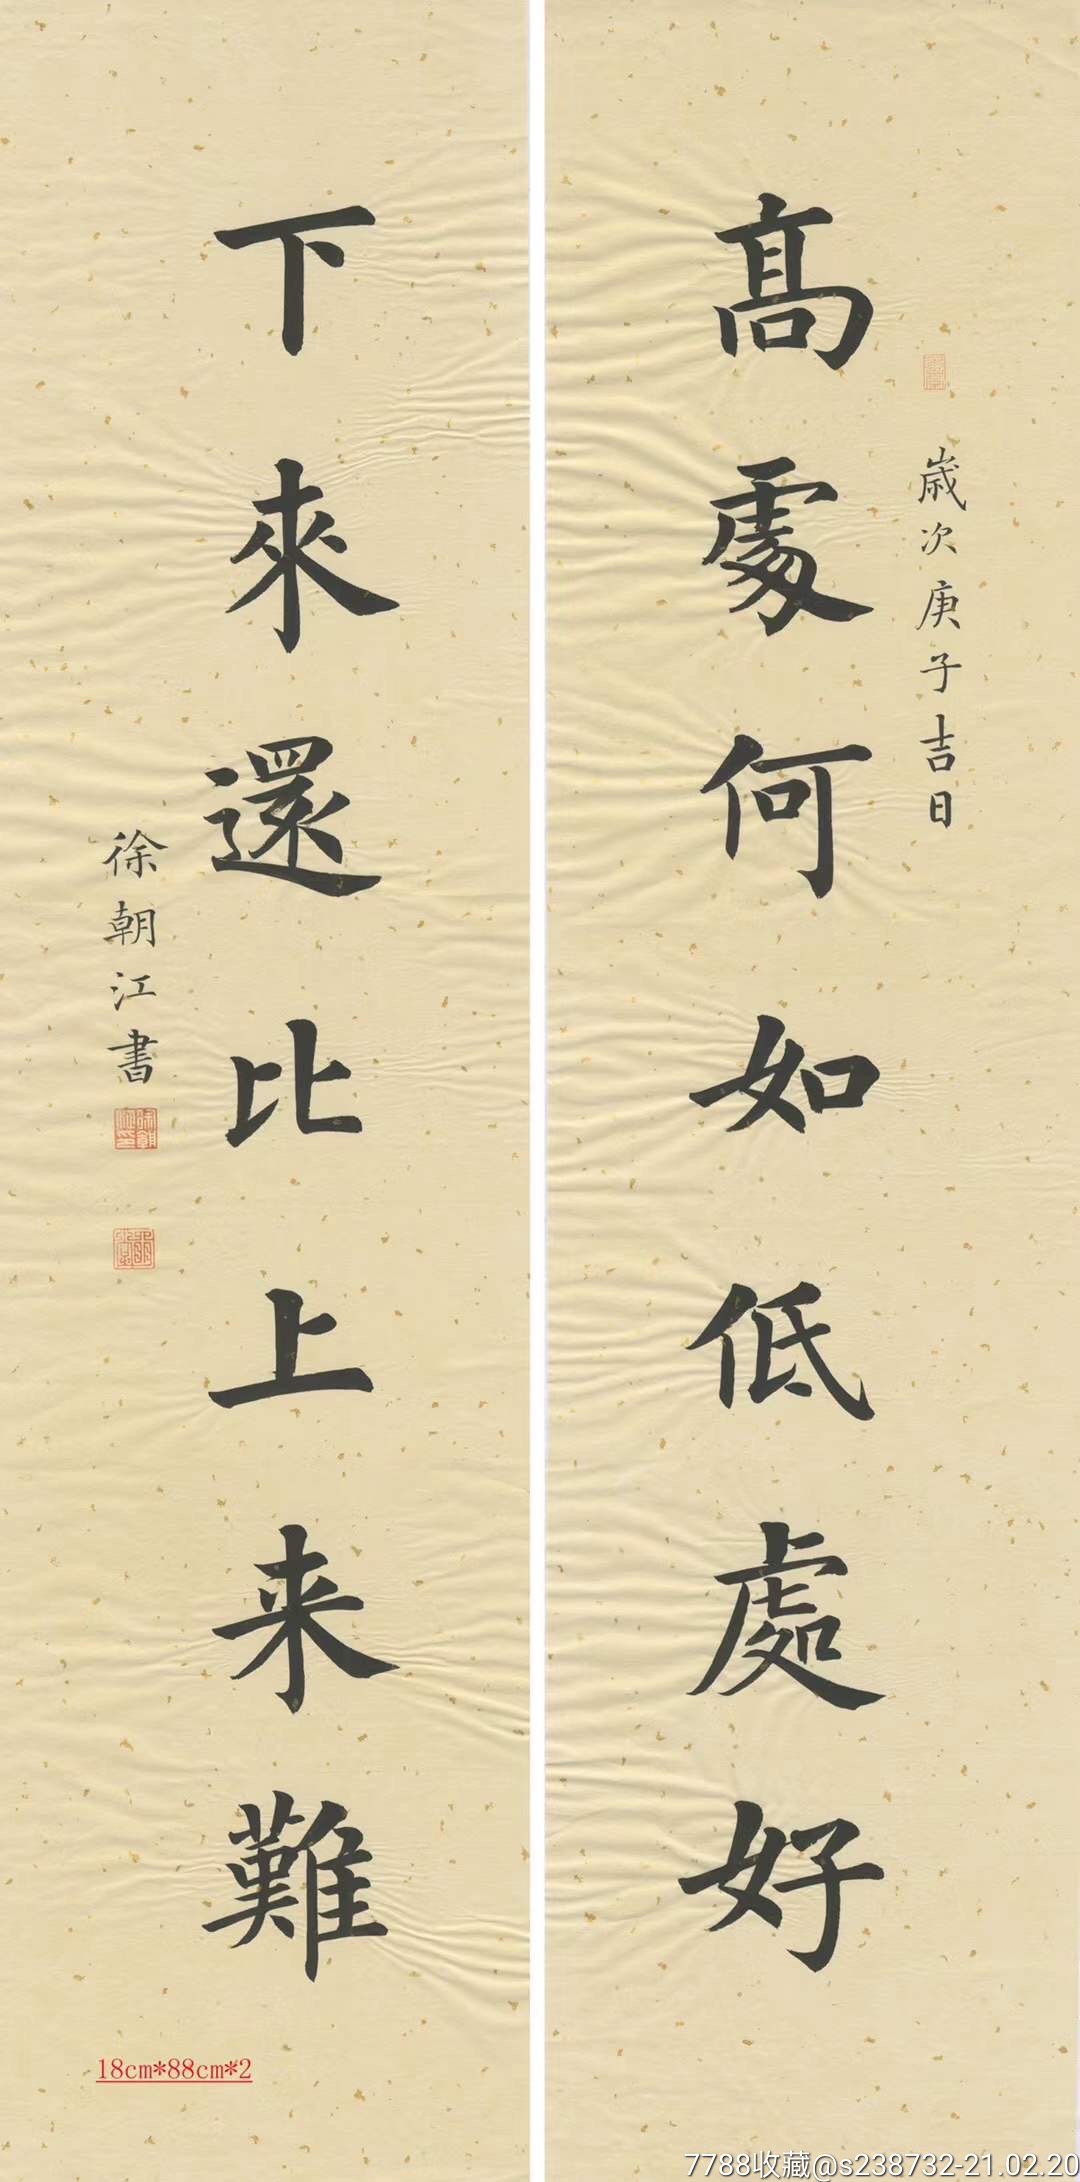 歲次庚子吉日
高處何如低處好
下來還比上来難
徐朝江書
18cm*88cm*2
7788收藏@s238732-21.02.20